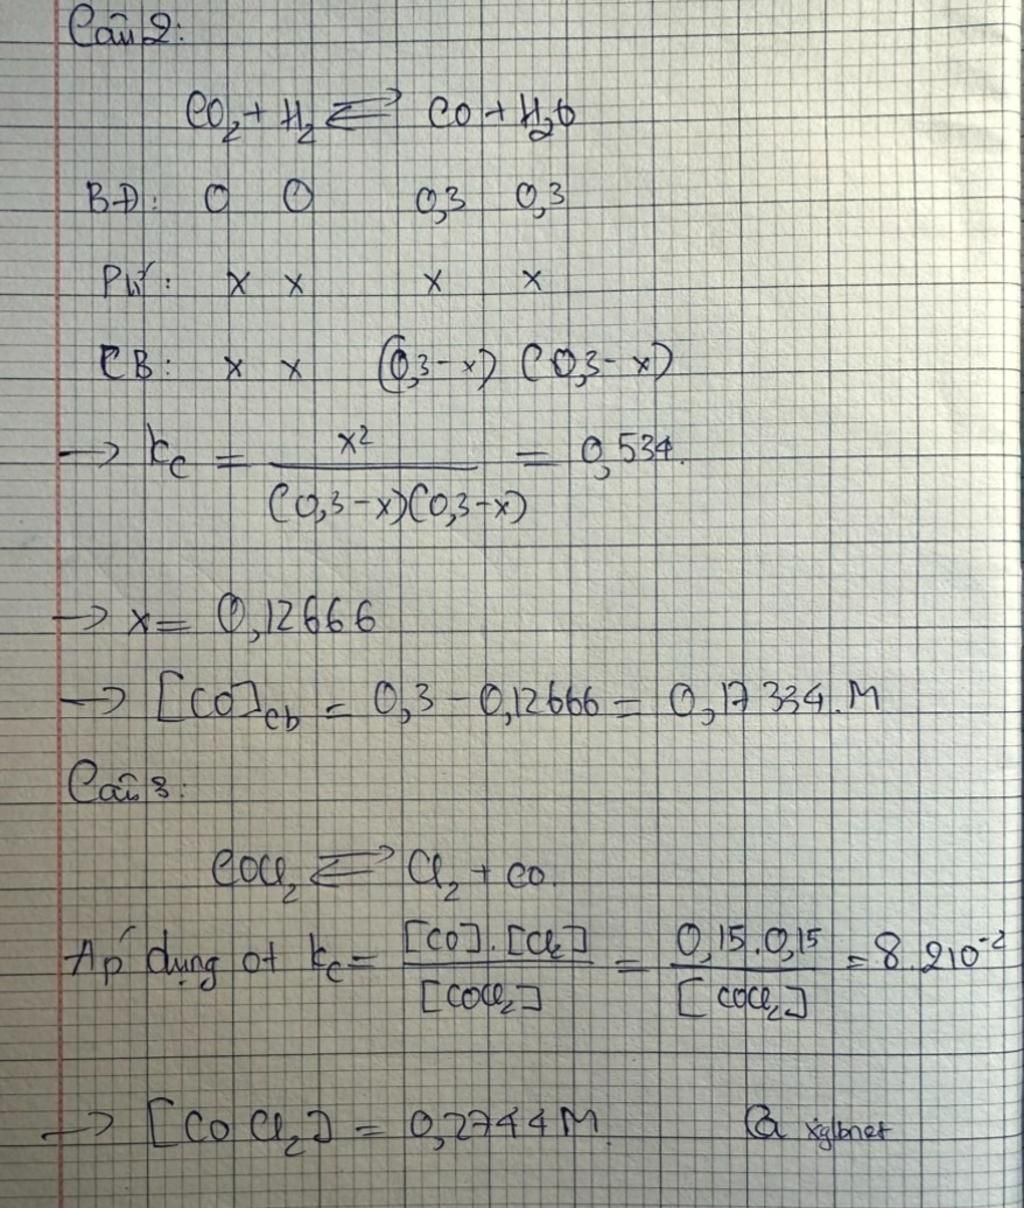 Câu 2:
CO₂ + H₂ ⇌ CO + H₂O
BĐ: 0 0 0,3 0,3
PƯ: x x x x
CB: x x (0,3-x) (0,3-x)
→ kc = x² / (0,3-x)(0,3-x) = 0,534.
→ x = 0,12666
→ [CO]cb = 0,3 - 0,12666 = 0,17334.M
Câu 3:
COCl₂ ⇌ Cl₂ + CO.
Áp dụng ct kc = [CO].[Cl₂] / [COCl₂] = 0,15.0,15 / [COCl₂] = 8.210⁻²
→ [COCl₂] = 0,2744M